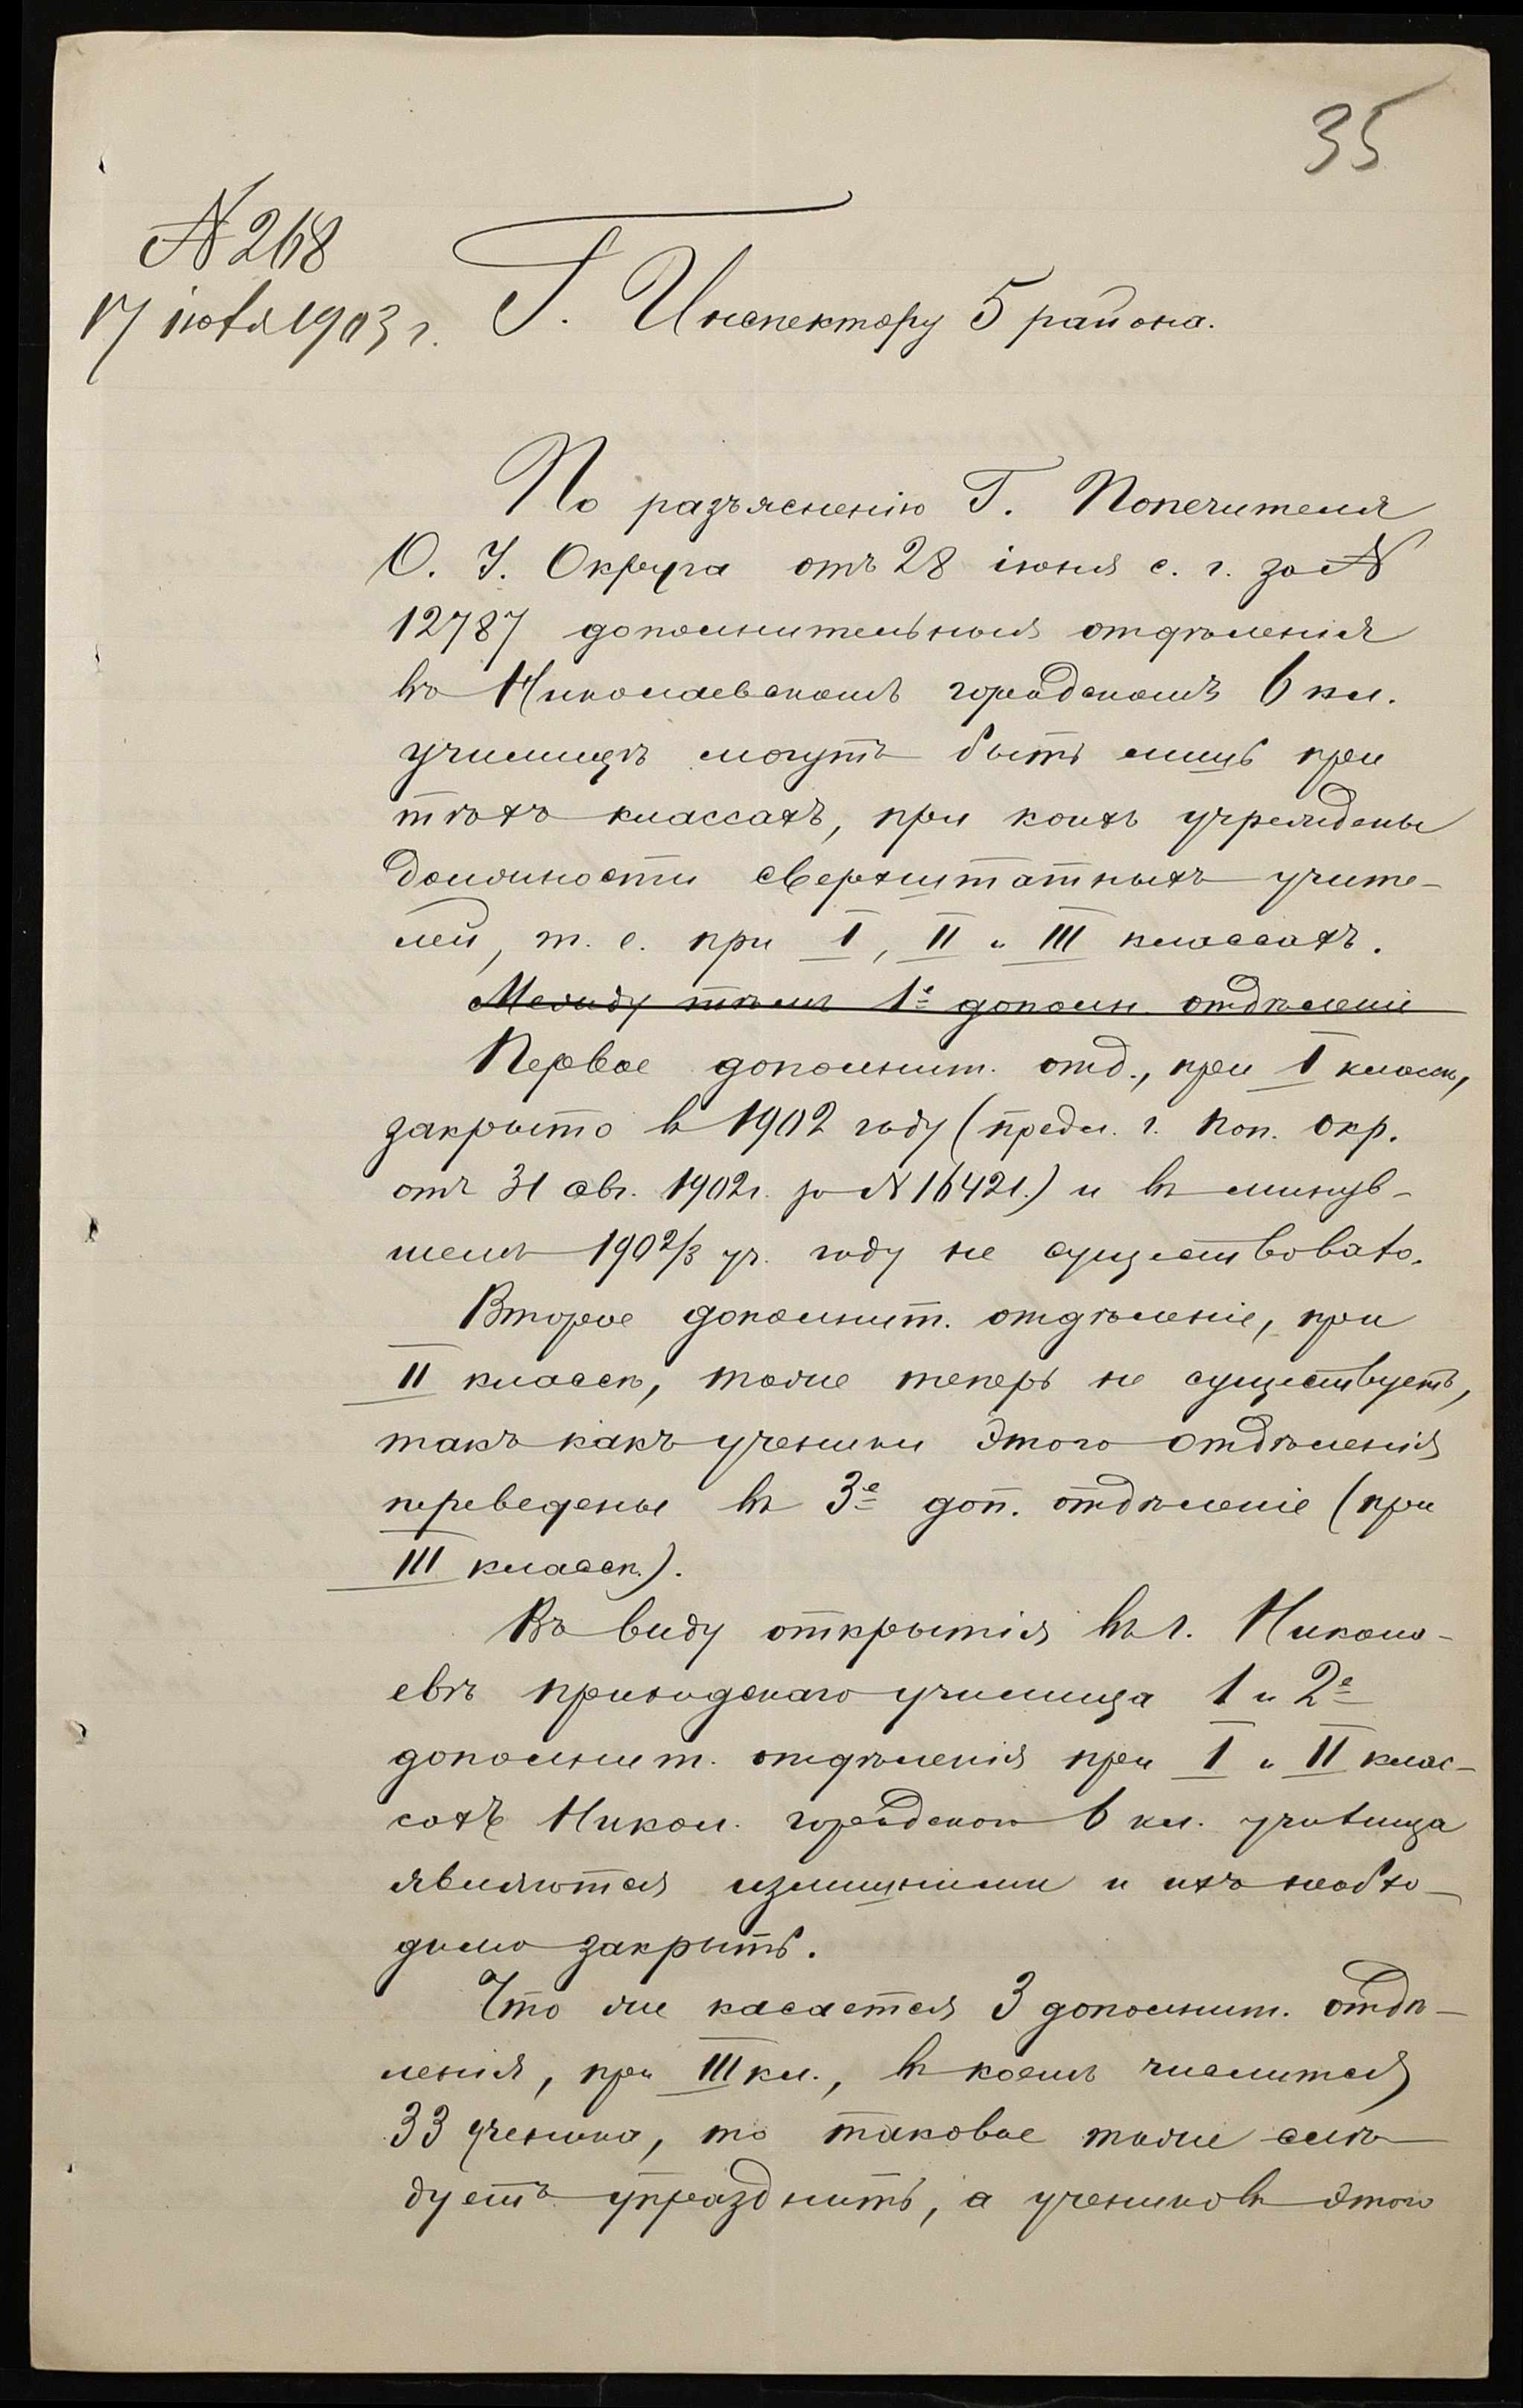 35
№ 268
17 іюля 1903 г.
Г. Инспектору 5 района.
По разъясненію Г. Попечителя
О. У. Округа отъ 28 іюня с. г. за №
12787 дополнительныя отдѣленія
въ Николаевскомъ городскомъ 6 кл.
училищѣ могутъ быть лишь при
тѣхъ классахъ, при коихъ учреждены
должности сверхштатныхъ учите-
лей, т. е. при I, II и III классахъ.
Между тѣмъ 1е дополн. отдѣленіе
Первое дополнит. отд., при I классѣ,
закрыто въ 1902 году (предл. г. Поп. Окр.
отъ 31 авг. 1902 г. за № 16421.) и въ минув-
шемъ 1902/3 уч. году не существовало.
Второе дополнит. отдѣленіе, при
II классѣ, тоже теперь не существуетъ,
такъ какъ ученики этого отдѣленія
переведены въ 3е доп. отдѣленіе (при
III классѣ.).
Въ виду открытія въ г. Никола-
евѣ приходскаго училища 1 и 2е
дополнит. отдѣленія при I и II клас-
сахъ Никол. городского 6 кл. училища
являются излишними и ихъ необхо-
димо закрыть.
Что же касается 3 дополнит. отдѣ-
ленія, при III кл., въ коемъ числится
33 ученика, то таковое тоже слѣ-
дуетъ упразднить, а учениковъ этого